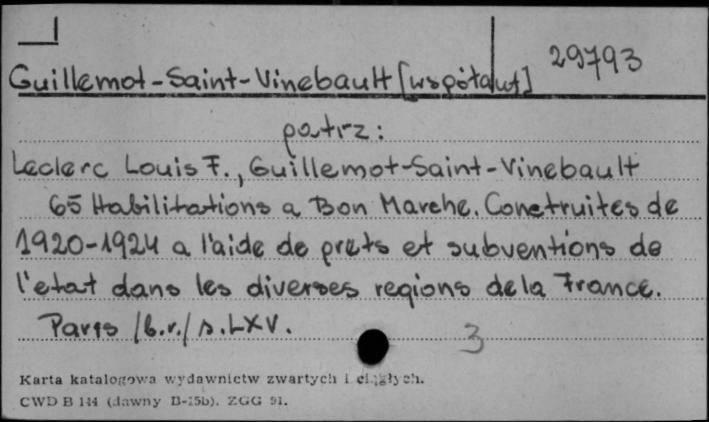 Guillemot-Saint-Vinebault [współaut] 29793
patrz:
Leclerc Louis F., Guillemot-Saint-Vinebault
65 Habilitations a Bon Marche. Construites de
1920-1924 a l'aide de prets et subventions de
l'etat dans les diverses regions de la France.
Paris /b.r./ s. LXV.
3
Karta katalogowa wydawnictw zwartych i ciągłych.
CWD B 144 (dawny B-15b). ZGG 91.